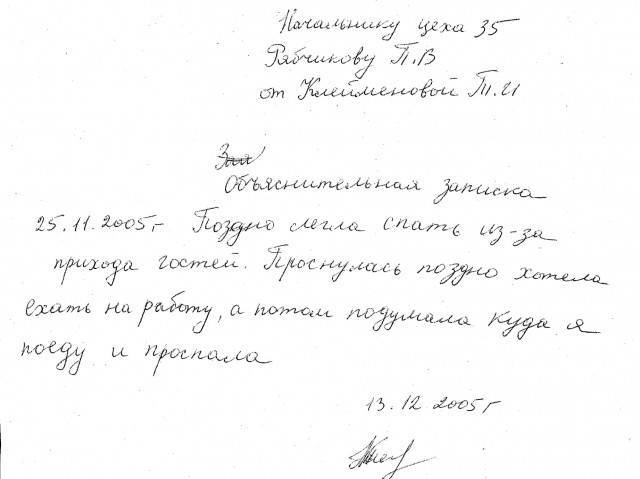 Начальнику цеха 35
Рябчикову П.В
от Клейменовой Т.И
Зая
Объяснительная записка
25.11.2005г Поздно легла спать из-за
прихода гостей. Проснулась поздно хотела
ехать на работу, а потом подумала куда я
поеду и проспала
13.12 2005г